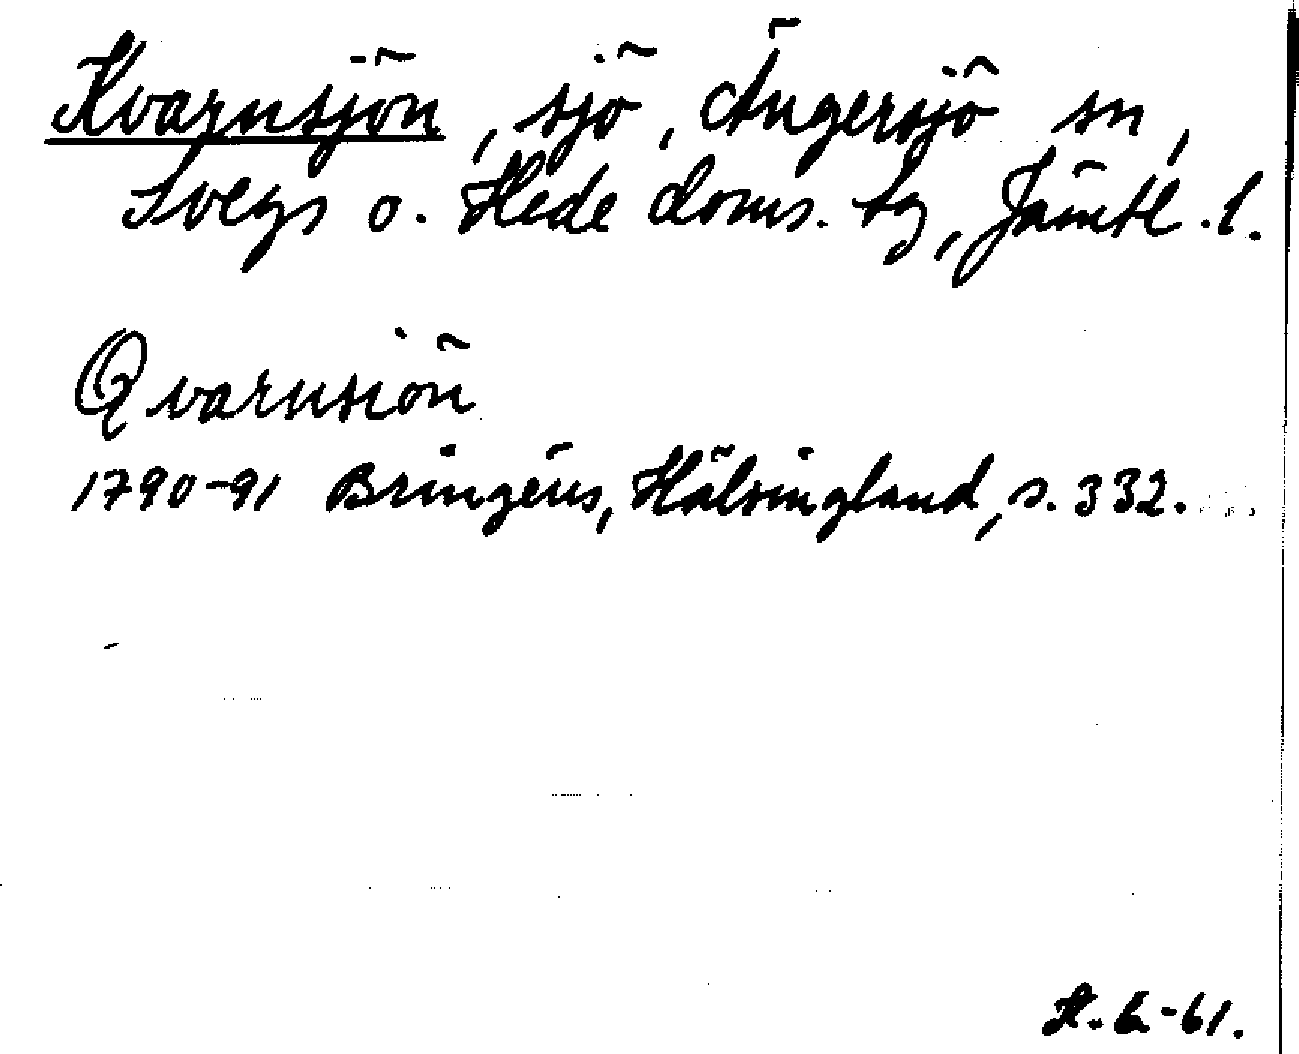 Kvarnsjön, sjö, Ängersjö sn,
Svegs o. Hede doms. tg, Jämtl. l.
Qvarnsiön
1790-91 Bringéus, Hälsingland, s. 332.